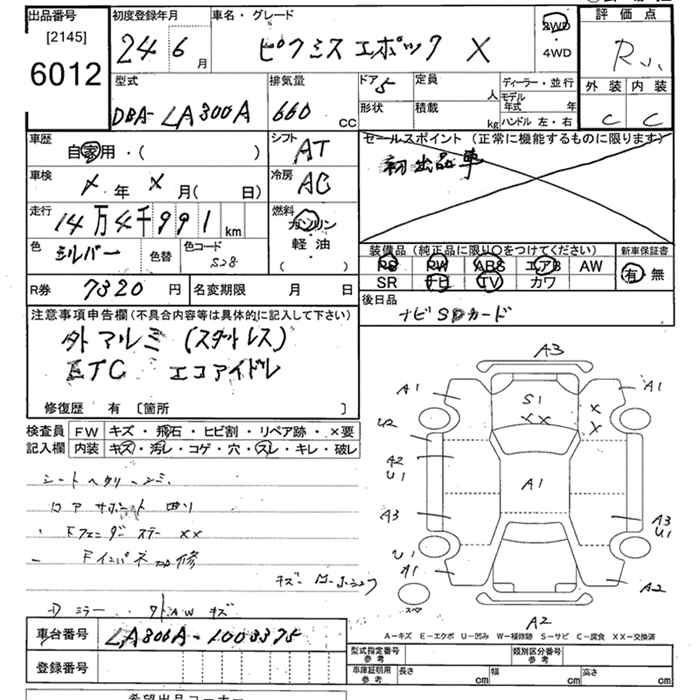 出品番号 初度登録年月 車名・グレード 評価点
[2145] 24 6月 ピクシスエポック X 2WD R
6012 ・4WD 外装 内装
型式 排気量 ドア 5 定員 人 ディーラー・並行 C C
DBA-LA300A 660 CC 形状 積載 kg モデル年式 年
ハンドル 左・右
車歴 シフト セールスポイント (正常に機能するものに限ります)
自家用・( ) AT 初出品車
車検 X年 X月( 日) 冷房 AC
走行 14万4千991km 燃料 ガソリン
色 シルバー 色替 色コード S28 軽油・( )
装備品(純正品に限り○をつけてください) 新車保証書
PS PW ABS エアB AW 有・無
SR ナビ TV カワ
R券 7320円 名変期限 月 日 後日品
ナビSDカード
注意事項申告欄(不具合内容等は具体的に記入して下さい)
外アルミ (スタットレス)
ETC エコアイドル
修復歴 有 [箇所 ]
検査員 FW キズ・飛石・ヒビ割・リペア跡・×要
記入欄 内装 キズ・汚レ・コゲ・穴・スレ・キレ・破レ
コアサポート 曲り
Fフェンダーステー XX
ミラー キズ
A3
A1 A1
S1
XX X X
U2
A2 U1
A1
A3 A3 U1
U1
A1 A2
スペア
A2
A-キズ E-エクボ U-凹み W-補修跡 S-サビ C-腐食 XX-交換済
車台番号 LA300A-1003375 型式指定番号 参考 類別区分番号 参考
登録番号 車庫証明用 参考 長さ cm 幅 cm 高さ cm
希望出品コーナー